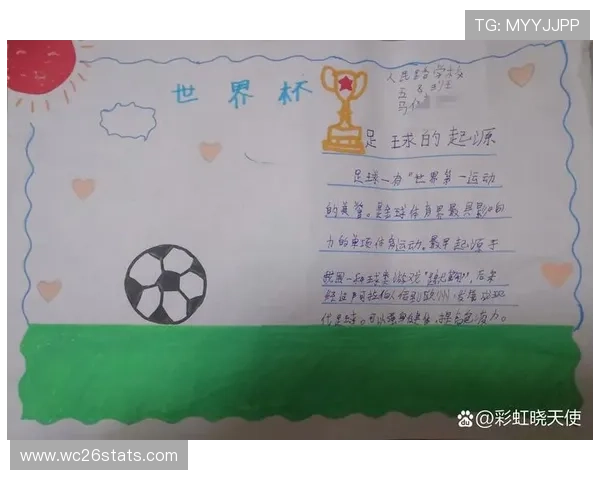 TG: MYYJJPP
世界杯
人民路学校
五
马
足球的起源
足球一有"世界第一运动
的美誉。是全球体育界最具影响
力的单项体育运动。最早起源于
我国一种球类游戏"蹴鞠"，后来
经过阿拉伯人传到欧洲，发展成现
代足球。可以强身健体，提高免疫力。
@彩虹晓天使
www.wc26stats.com